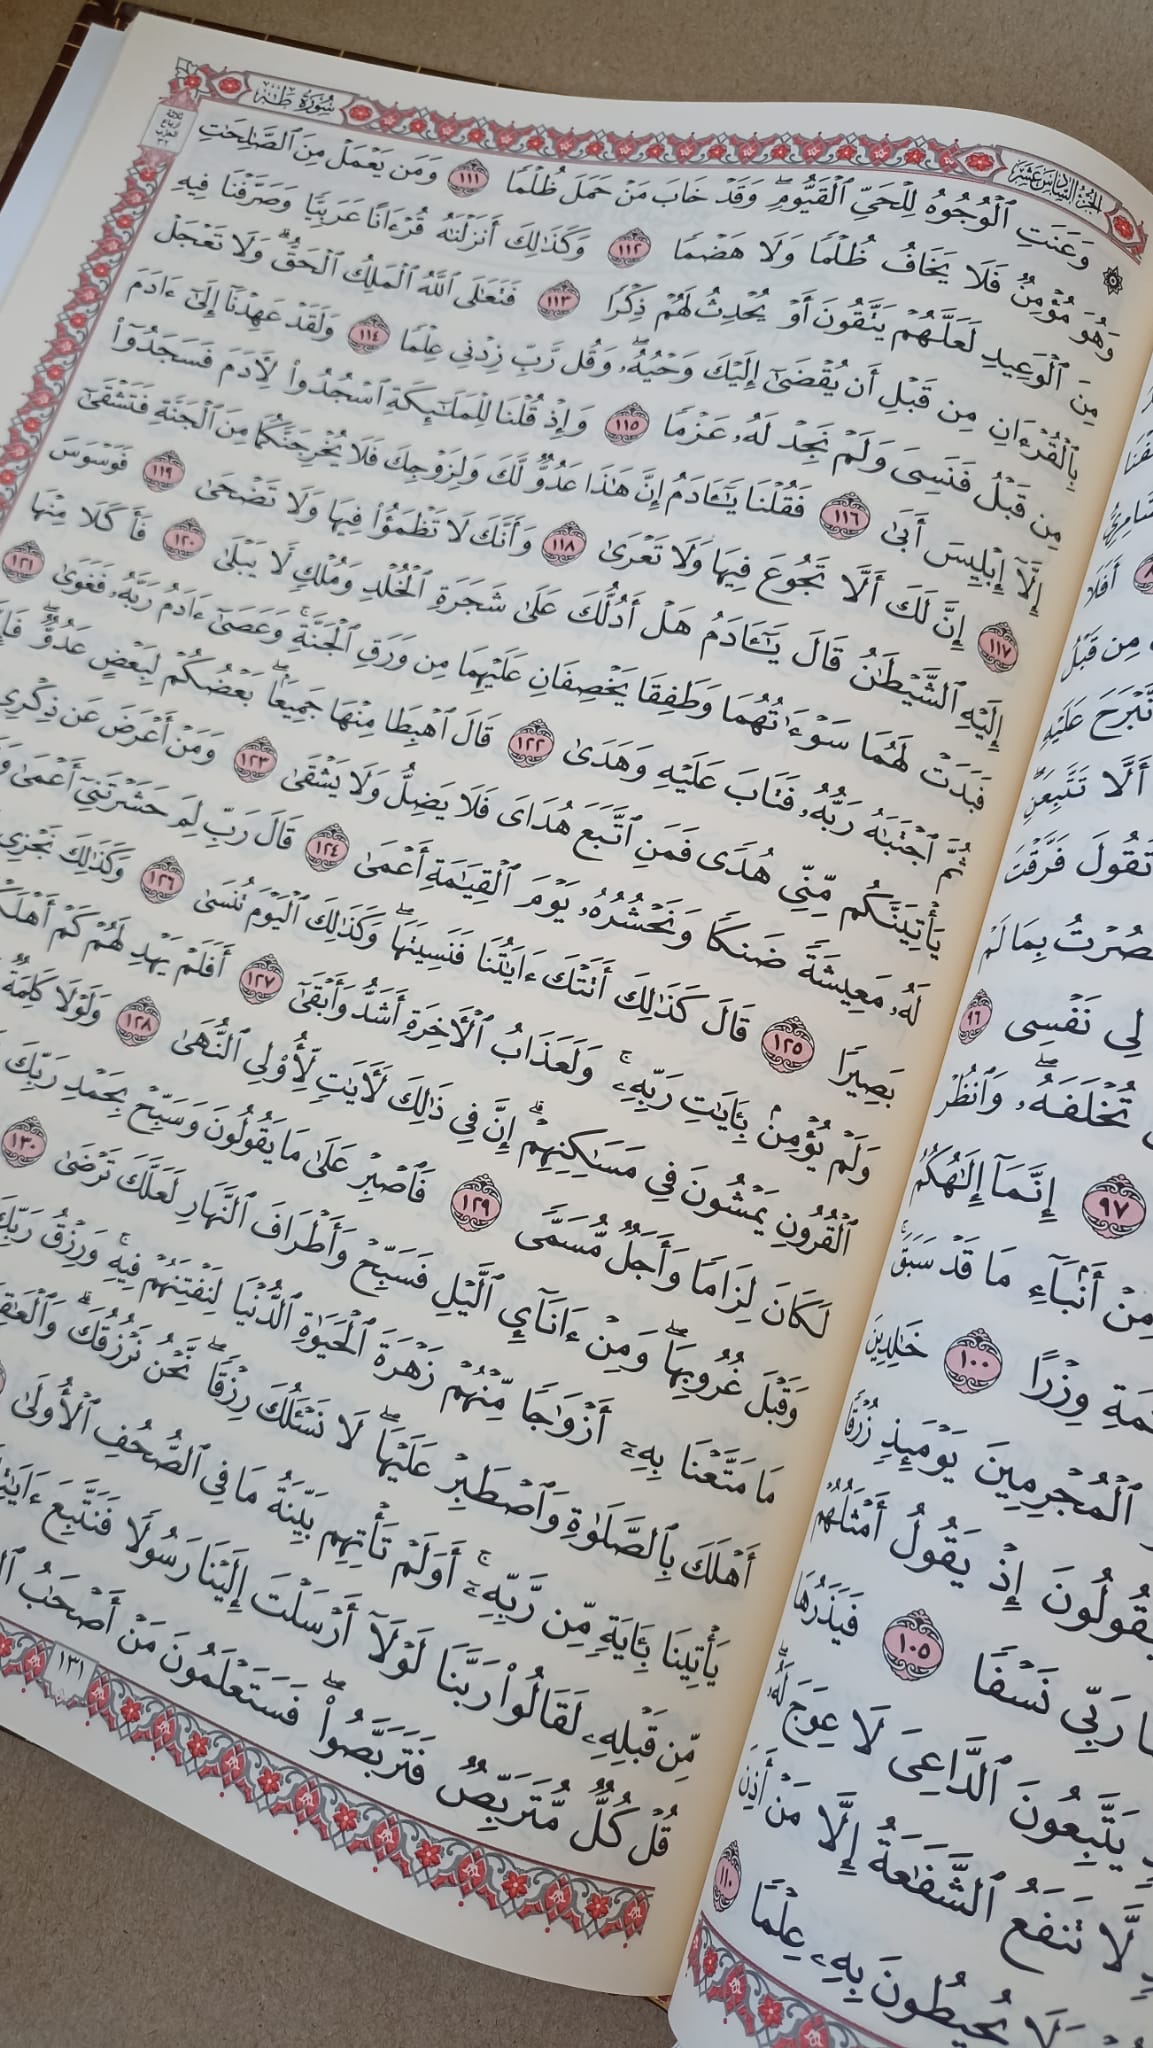 الجزء السادس عشر
سورة طه
۞ وَعَنَتِ ٱلْوُجُوهُ لِلْحَيِّ ٱلْقَيُّومِۖ وَقَدْ خَابَ مَنْ حَمَلَ ظُلْمًا ١١١ وَمَن يَعْمَلْ مِنَ ٱلصَّٰلِحَٰتِ
وَهُوَ مُؤْمِنٌ فَلَا يَخَافُ ظُلْمًا وَلَا هَضْمًا ١١٢ وَكَذَٰلِكَ أَنزَلْنَٰهُ قُرْءَانًا عَرَبِيًّا وَصَرَّفْنَا فِيهِ
مِنَ ٱلْوَعِيدِ لَعَلَّهُمْ يَتَّقُونَ أَوْ يُحْدِثُ لَهُمْ ذِكْرًا ١١٣ فَتَعَٰلَى ٱللَّهُ ٱلْمَلِكُ ٱلْحَقُّۗ وَلَا تَعْجَلْ
بِٱلْقُرْءَانِ مِن قَبْلِ أَن يُقْضَىٰٓ إِلَيْكَ وَحْيُهُۥۖ وَقُل رَّبِّ زِدْنِي عِلْمًا ١١٤ وَلَقَدْ عَهِدْنَآ إِلَىٰٓ ءَادَمَ
مِن قَبْلُ فَنَسِيَ وَلَمْ نَجِدْ لَهُۥ عَزْمًا ١١٥ وَإِذْ قُلْنَا لِلْمَلَٰٓئِكَةِ ٱسْجُدُوا۟ لِأٓدَمَ فَسَجَدُوٓا۟
إِلَّآ إِبْلِيسَ أَبَىٰ ١١٦ فَقُلْنَا يَٰٓـَٔادَمُ إِنَّ هَٰذَا عَدُوٌّ لَّكَ وَلِزَوْجِكَ فَلَا يُخْرِجَنَّكُمَا مِنَ ٱلْجَنَّةِ فَتَشْقَىٰٓ
١١٧ إِنَّ لَكَ أَلَّا تَجُوعَ فِيهَا وَلَا تَعْرَىٰ ١١٨ وَأَنَّكَ لَا تَظْمَؤُا۟ فِيهَا وَلَا تَضْحَىٰ ١١٩ فَوَسْوَسَ
إِلَيْهِ ٱلشَّيْطَٰنُ قَالَ يَٰٓـَٔادَمُ هَلْ أَدُلُّكَ عَلَىٰ شَجَرَةِ ٱلْخُلْدِ وَمُلْكٍ لَّا يَبْلَىٰ ١٢٠ فَأَكَلَا مِنْهَا
فَبَدَتْ لَهُمَا سَوْءَٰتُهُمَا وَطَفِقَا يَخْصِفَانِ عَلَيْهِمَا مِن وَرَقِ ٱلْجَنَّةِۚ وَعَصَىٰٓ ءَادَمُ رَبَّهُۥ فَغَوَىٰ ١٢١
ثُمَّ ٱجْتَبَٰهُ رَبُّهُۥ فَتَابَ عَلَيْهِ وَهَدَىٰ ١٢٢ قَالَ ٱهْبِطَا مِنْهَا جَمِيعًۢاۖ بَعْضُكُمْ لِبَعْضٍ عَدُوٌّۖ
يَأْتِيَنَّكُم مِّنِّي هُدًى فَمَنِ ٱتَّبَعَ هُدَايَ فَلَا يَضِلُّ وَلَا يَشْقَىٰ ١٢٣ وَمَنْ أَعْرَضَ عَن ذِكْرِي
لَهُۥ مَعِيشَةً ضَنكًا وَنَحْشُرُهُۥ يَوْمَ ٱلْقِيَٰمَةِ أَعْمَىٰ ١٢٤ قَالَ رَبِّ لِمَ حَشَرْتَنِيٓ أَعْمَىٰ
بَصِيرًا ١٢٥ قَالَ كَذَٰلِكَ أَتَتْكَ ءَايَٰتُنَا فَنَسِيتَهَاۖ وَكَذَٰلِكَ ٱلْيَوْمَ تُنسَىٰ ١٢٦ وَكَذَٰلِكَ نَجْزِي
وَلَمْ يُؤْمِنۢ بِـَٔايَٰتِ رَبِّهِۦۚ وَلَعَذَابُ ٱلْأٓخِرَةِ أَشَدُّ وَأَبْقَىٰٓ ١٢٧ أَفَلَمْ يَهْدِ لَهُمْ كَمْ
ٱلْقُرُونِ يَمْشُونَ فِي مَسَٰكِنِهِمْۗ إِنَّ فِي ذَٰلِكَ لَأٓيَٰتٍ لِّأُو۟لِي ٱلنُّهَىٰ ١٢٨ وَلَوْلَا كَلِمَةٌ
لَكَانَ لِزَامًا وَأَجَلٌ مُّسَمًّى ١٢٩ فَٱصْبِرْ عَلَىٰ مَا يَقُولُونَ وَسَبِّحْ بِحَمْدِ رَبِّكَ
وَقَبْلَ غُرُوبِهَاۖ وَمِنْ ءَانَآئِ ٱلَّيْلِ فَسَبِّحْ وَأَطْرَافَ ٱلنَّهَارِ لَعَلَّكَ تَرْضَىٰ ١٣٠
مَا مَتَّعْنَا بِهِۦٓ أَزْوَٰجًا مِّنْهُمْ زَهْرَةَ ٱلْحَيَوٰةِ ٱلدُّنْيَا لِنَفْتِنَهُمْ فِيهِۚ وَرِزْقُ رَبِّكَ
أَهْلَكَ بِٱلصَّلَوٰةِ وَٱصْطَبِرْ عَلَيْهَاۖ لَا نَسْـَٔلُكَ رِزْقًاۖ نَّحْنُ نَرْزُقُكَۗ
يَأْتِينَا بِـَٔايَةٍ مِّن رَّبِّهِۦٓۚ أَوَلَمْ تَأْتِهِم بَيِّنَةُ مَا فِي ٱلصُّحُفِ ٱلْأُولَىٰ
مِّن قَبْلِهِۦ لَقَالُوا۟ رَبَّنَا لَوْلَآ أَرْسَلْتَ إِلَيْنَا رَسُولًا فَنَتَّبِعَ
قُلْ كُلٌّ مُّتَرَبِّصٌ فَتَرَبَّصُوا۟ۖ فَسَتَعْلَمُونَ مَنْ أَصْحَٰبُ
١٣١
أَفَلَا
مِن قَبْلُ
نَّبْرَحَ عَلَيْهِ
أَلَّا تَتَّبِعَنِۖ
تَقُولَ فَرَّقْتَ
بَصُرْتُ بِمَا لَمْ
لِي نَفْسِي ٩٦
تُخْلَفَهُۥۖ وَٱنظُرْ
٩٧ إِنَّمَآ إِلَٰهُكُمُ
مِنْ أَنۢبَآءِ مَا قَدْ سَبَقَۚ
وِزْرًا ١٠٠ خَٰلِدِينَ
ٱلْمُجْرِمِينَ يَوْمَئِذٍ زُرْقًا
يَقُولُونَ إِذْ يَقُولُ أَمْثَلُهُمْ
رَبِّي نَسْفًا ١٠٥ فَيَذَرُهَا
يَتَّبِعُونَ ٱلدَّاعِيَ لَا عِوَجَ لَهُۥۖ
لَّا تَنفَعُ ٱلشَّفَٰعَةُ إِلَّا مَنْ أَذِنَ
وَلَا يُحِيطُونَ بِهِۦ عِلْمًا ١١٠